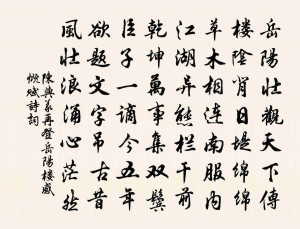 岳陽壮觀天下傳
楼陰背日堤綿綿
草木相連南服内
江湖异態栏干前
乾坤萬事集双鬓
臣子一謫今五年
欲題文字吊古昔
風壮浪涌心茫然
陳與義再登岳陽楼感
慨赋詩詞